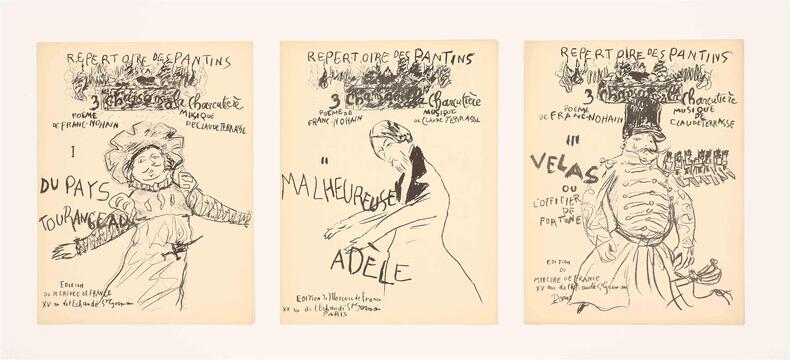 REPERTOIRE DES PANTINS
3 Chansons à la Charcutière
POÈME
DE FRANC-NOHAIN
MUSIQUE
DE CLAUDE TERRASSE
I
DU PAYS
TOURANGEAU
EDITION
DU MERCURE DE FRANCE
XV rue de l'Echaudé St Germain
REPERTOIRE DES PANTINS
3 Chansons à la Charcutière
POÈME DE
FRANC-NOHAIN
MUSIQUE
DE CLAUDE TERRASSE
II
MALHEUREUSE
ADÈLE
EDITION du Mercure de France
XV rue de l'Echaudé St Germain
PARIS
REPERTOIRE DES PANTINS
3 Chansons à la Charcutière
POÈME
DE FRANC-NOHAIN
MUSIQUE
DE
CLAUDE TERRASSE
III
VELAS
OU
L'OFFICIER
DE
FORTUNE
EDITION
DU
MERCURE DE FRANCE
XV rue de l'Echaudé St Germain
Paris